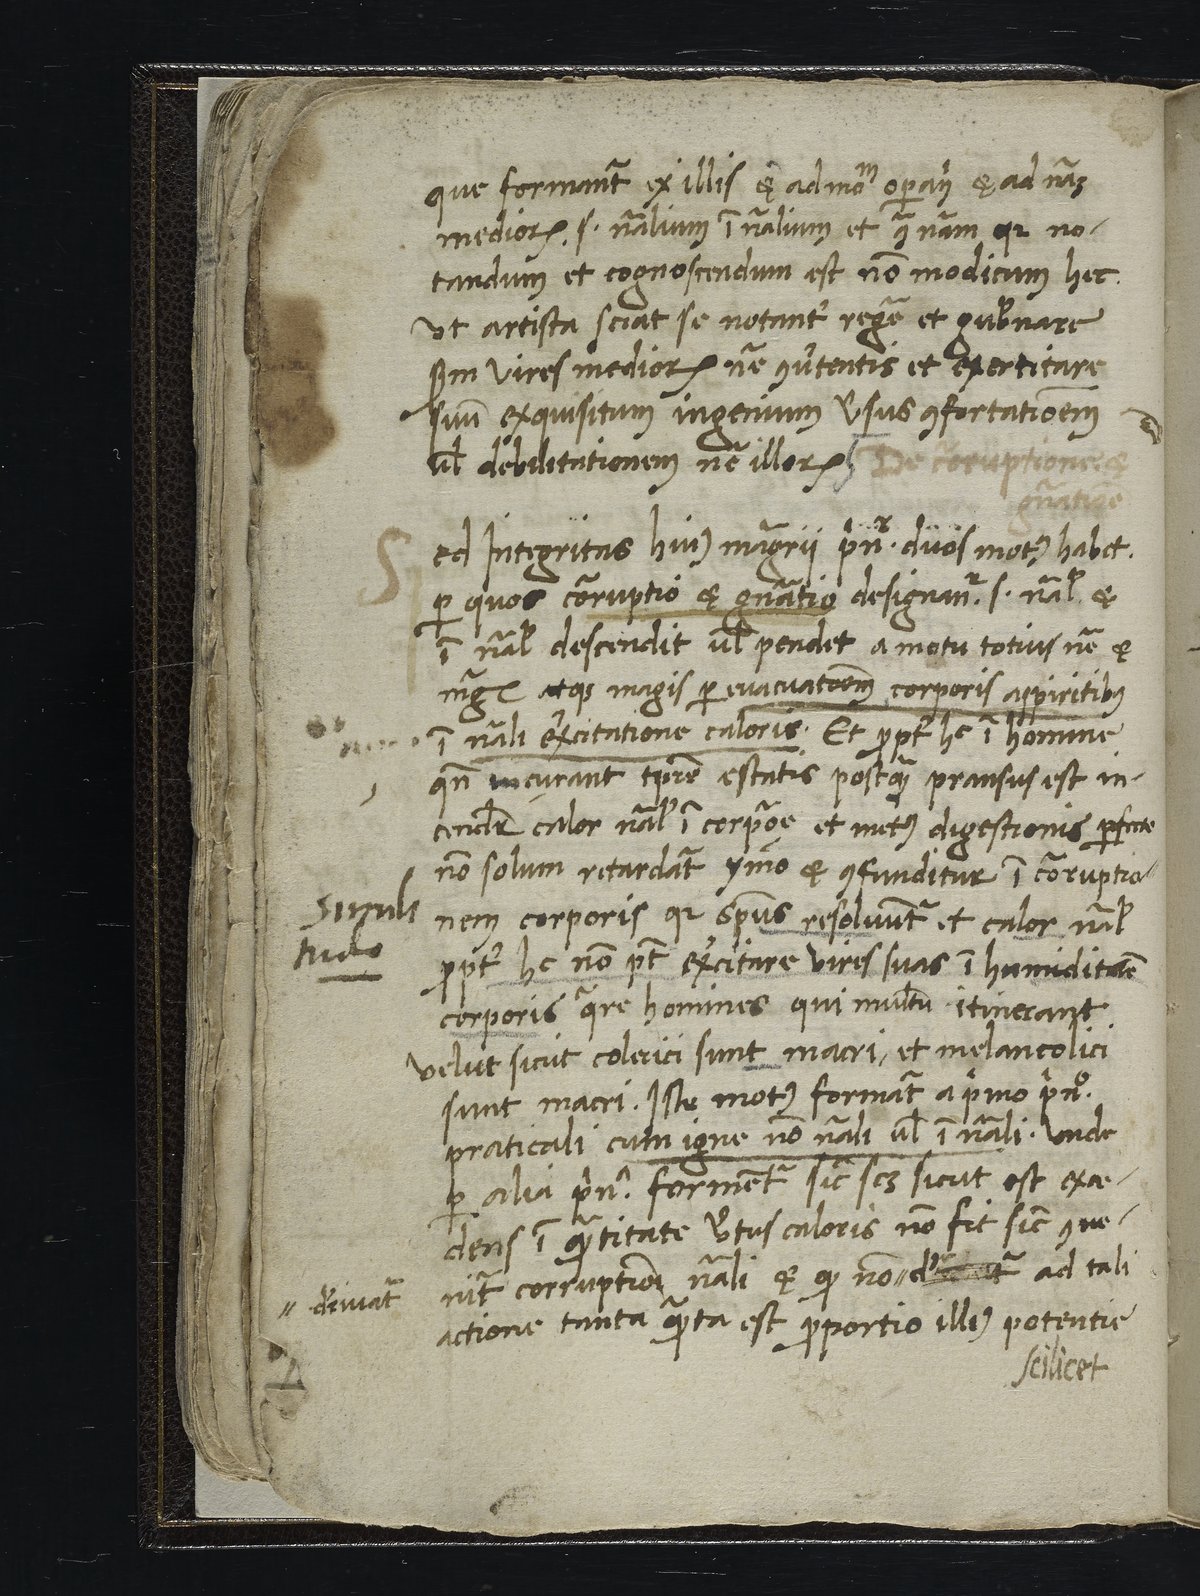 que formant̃ ex illis & ad moᵐ operaṇ̃ & ad nãs
medioꝝ. s. nãlium ĩnãlium et ꝯ̃ nãm qꝛ no-
tandum et cognoscendum est nõ modicum hec.
Vt artista sciat se notanť regẽ et gub̾nare
ẜm vires medioꝝ nẽ ꝯu̾tentis et exertitare
suũ exquisitum ingenium v̾sus ꝯfortationem
ul̃ debilitationem nẽ illoꝝ De coruptione &
gñatione
Sed Integritas huiꝰ mãgrii pñr. duos motꝰ habet.
ꝑ quos cõruptio & gñatio designanr̃. s. nãl̾ &
ĩ nãl̾ descendit ul̃ pendet a motu totius nẽ &
atqꝫ magis ꝑ evacuatoem corporis aspiritibꝰ
ĩ nãli ex̾citatione caloris. Et ꝓpť hc ĩ homine
qñ currant tp̃re estatis postꝙ̃ pransus est in-
cendr̃ calor nãl̾ ĩ corpõe et metꝰ digestionis ꝑfecte
nõ solum retardat̃ ymõ & ꝯfunditur ĩ cõruptio-
Simili
tudo
nem corporis qꝛ sp̃us resoluunt̃ et calor nãl̾
ꝓpť hc nõ pt̃ ex̾citare vires suas ĩ humiditatẽ
corporis q̃re homines qui multũ itinerant
velut sicut colerici sunt macri, et melancolici
sunt macri. Iste motꝰ format̃ a p̾mo p̾nº.
praticali cum igne nõ nãli ul̃ ĩ nãli. Unde
ꝑ alia p̾nª. forment̃ sic̃ scꝫ sicut est exce-
dens ĩ qu̾titate v̾tus caloris nõ fit sic̃ ꝯue-
nit̃ corruptiõi nãli & ꝙ nõ〃 ad tali
〃 deriuat̃
actione tanta qu̾ta est ꝓportio illiꝰ potentie
scilicet